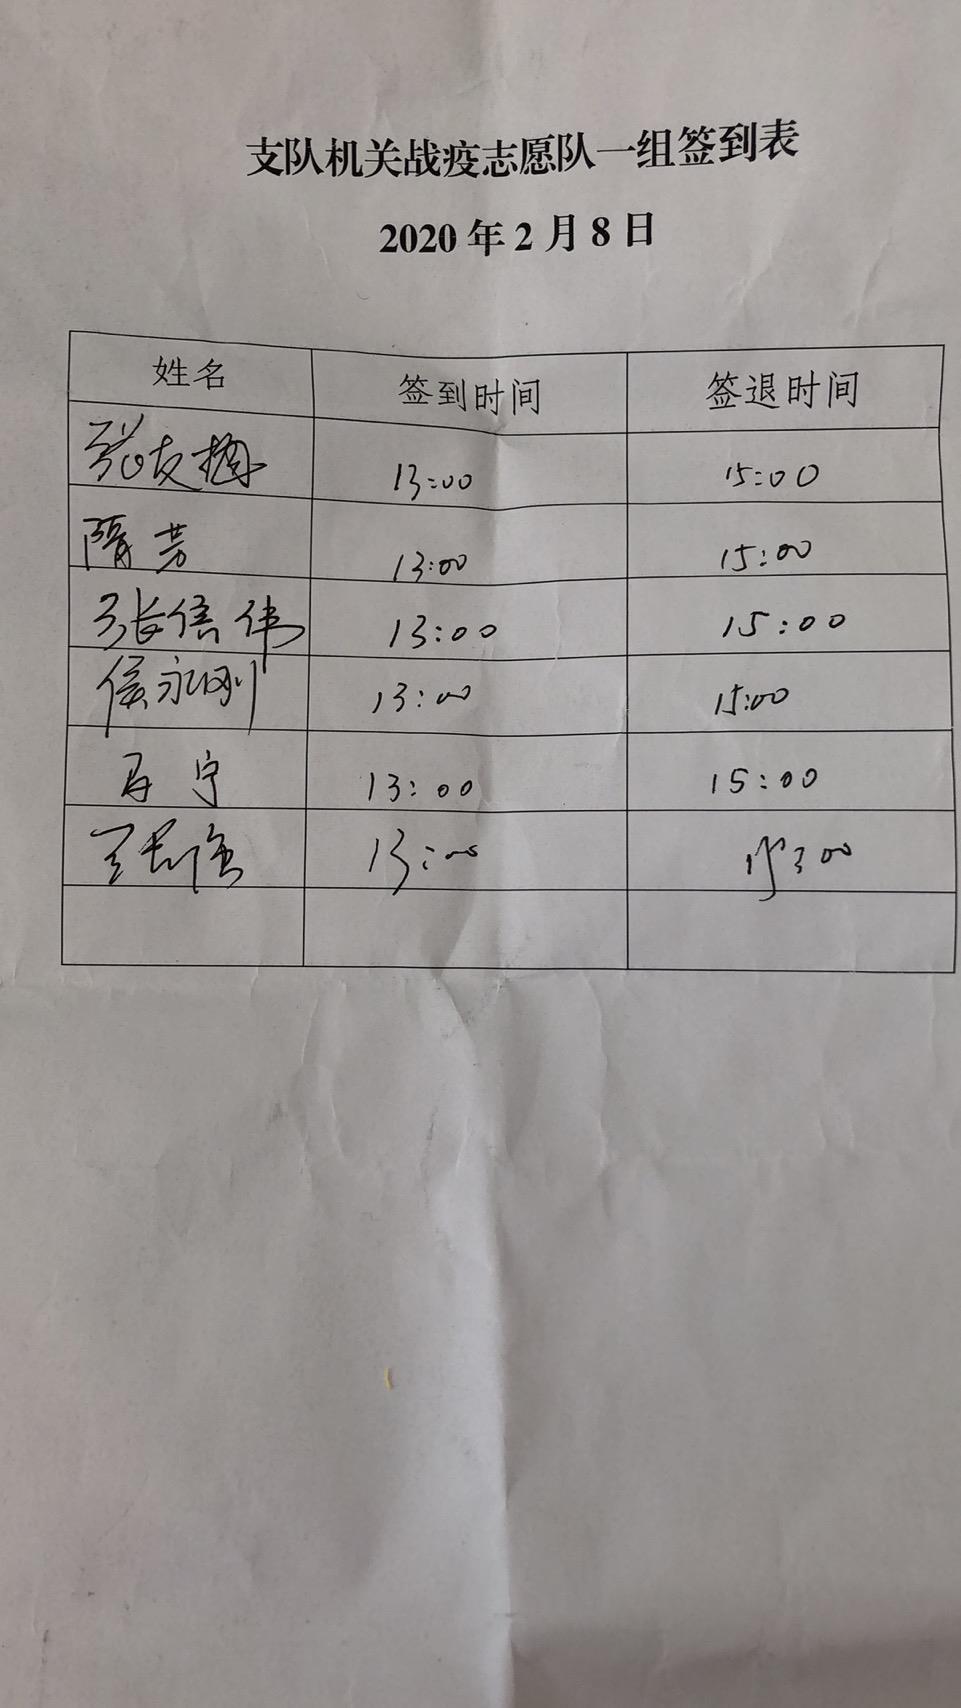 支队机关战疫志愿队一组签到表
2020 年 2 月 8 日
姓名 签到时间 签退时间
张友梅 13:00 15:00
隋芳 13:00 15:00
张信伟 13:00 15:00
侯永刚 13:00 15:00
宁 13:00 15:00
王 13:00 15:00